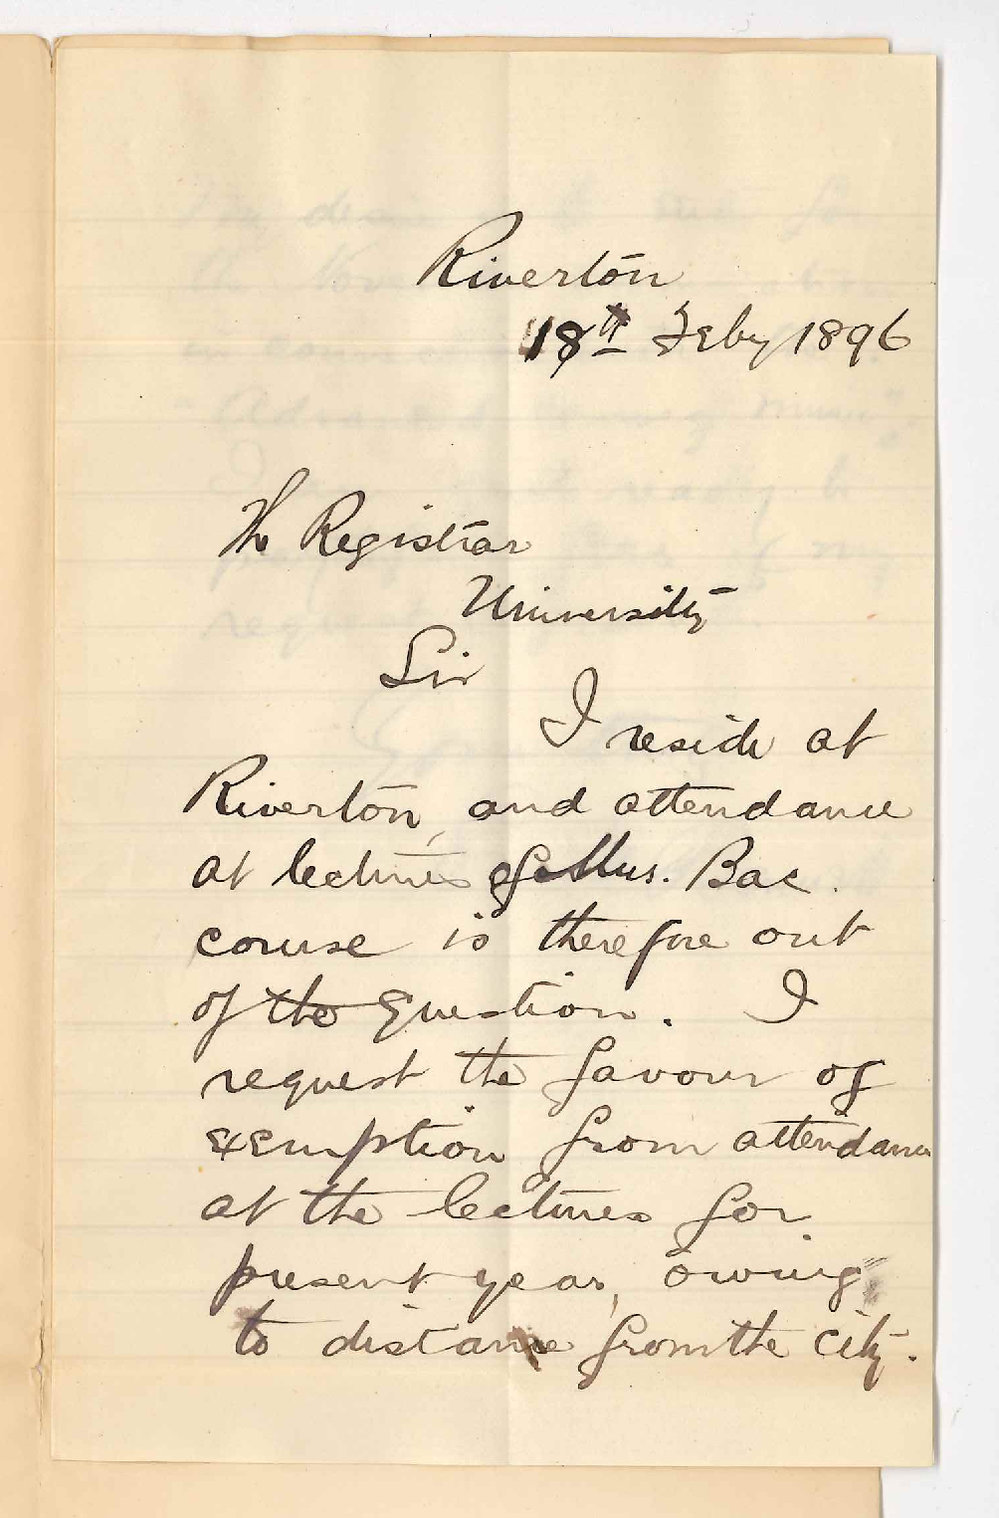 Riverton
18th Feby 1896
The Registrar
University
Sir
I reside at
Riverton, and attendance
at lectures of Mus. Bac.
course is therefore out
of the question. I
request the favour of
exemption from attendance
at the lectures for
present year, owing
to distance from the city.